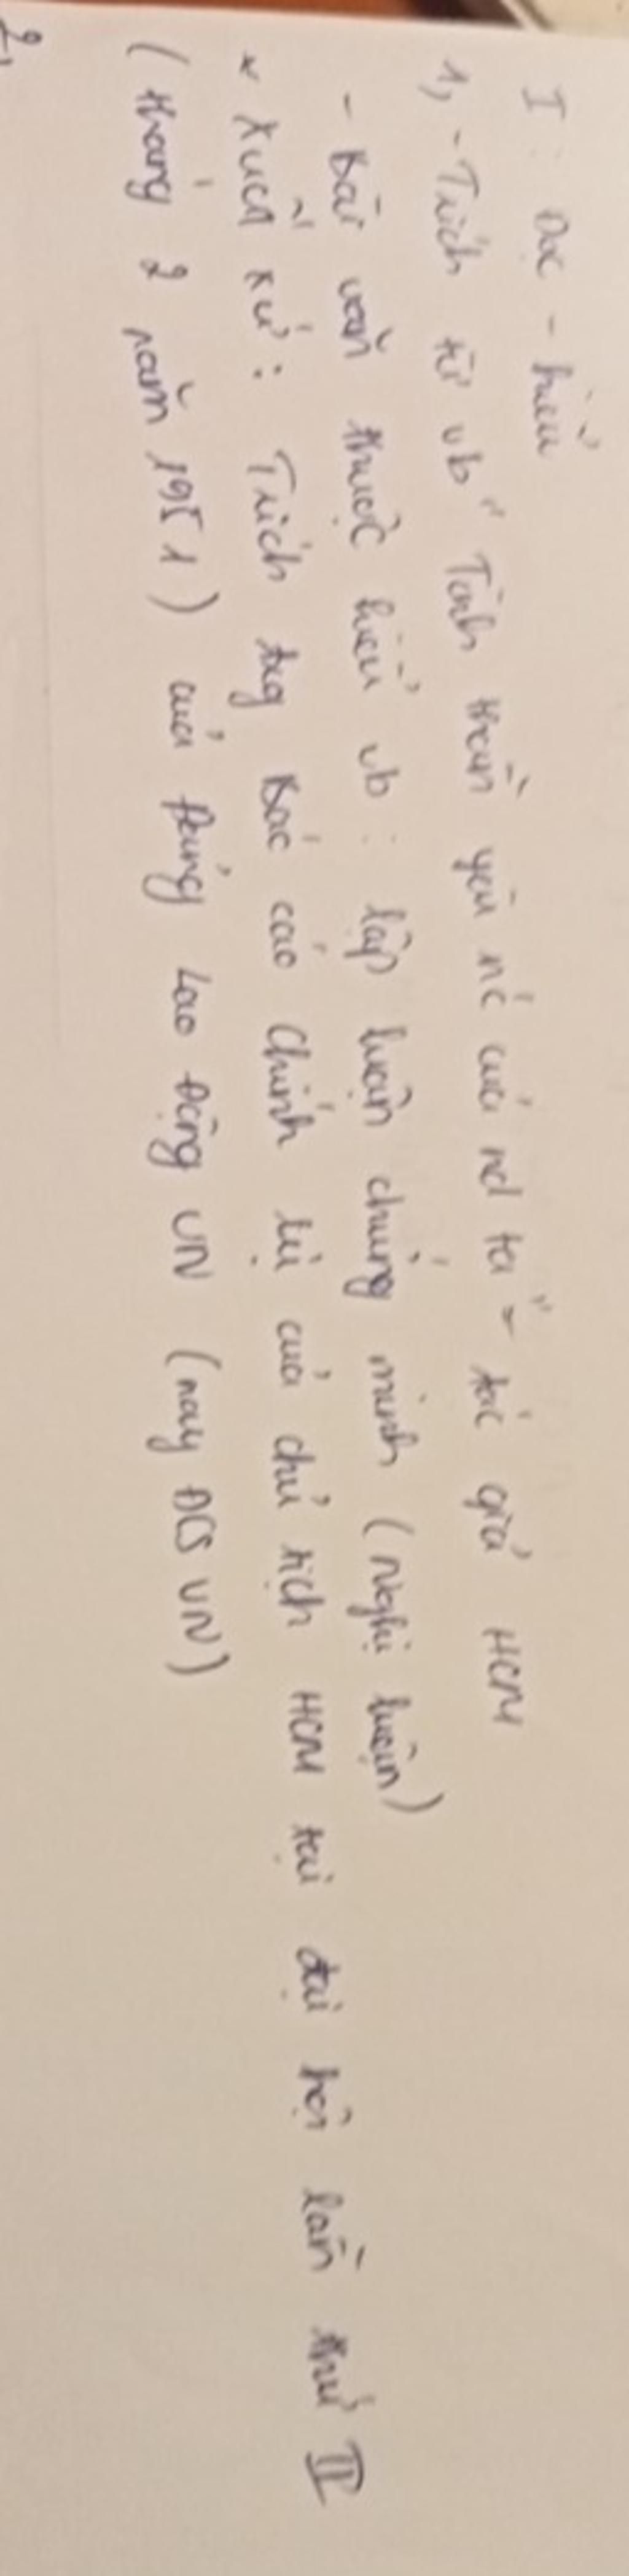 I: Đọc - hiểu
1, - Trích từ vb "Tinh thần yêu nc của nd ta" - tác giả HCM
- Bài văn thuộc kiểu vb: lập luận chứng minh (nghị luận)
* Xuất xứ: Trích trg Báo cáo Chính trị của chủ tịch HCM tại đại hội lần thứ II
(tháng 2 năm 1951) của Đảng Lao Động VN (nay ĐCS VN)
2,